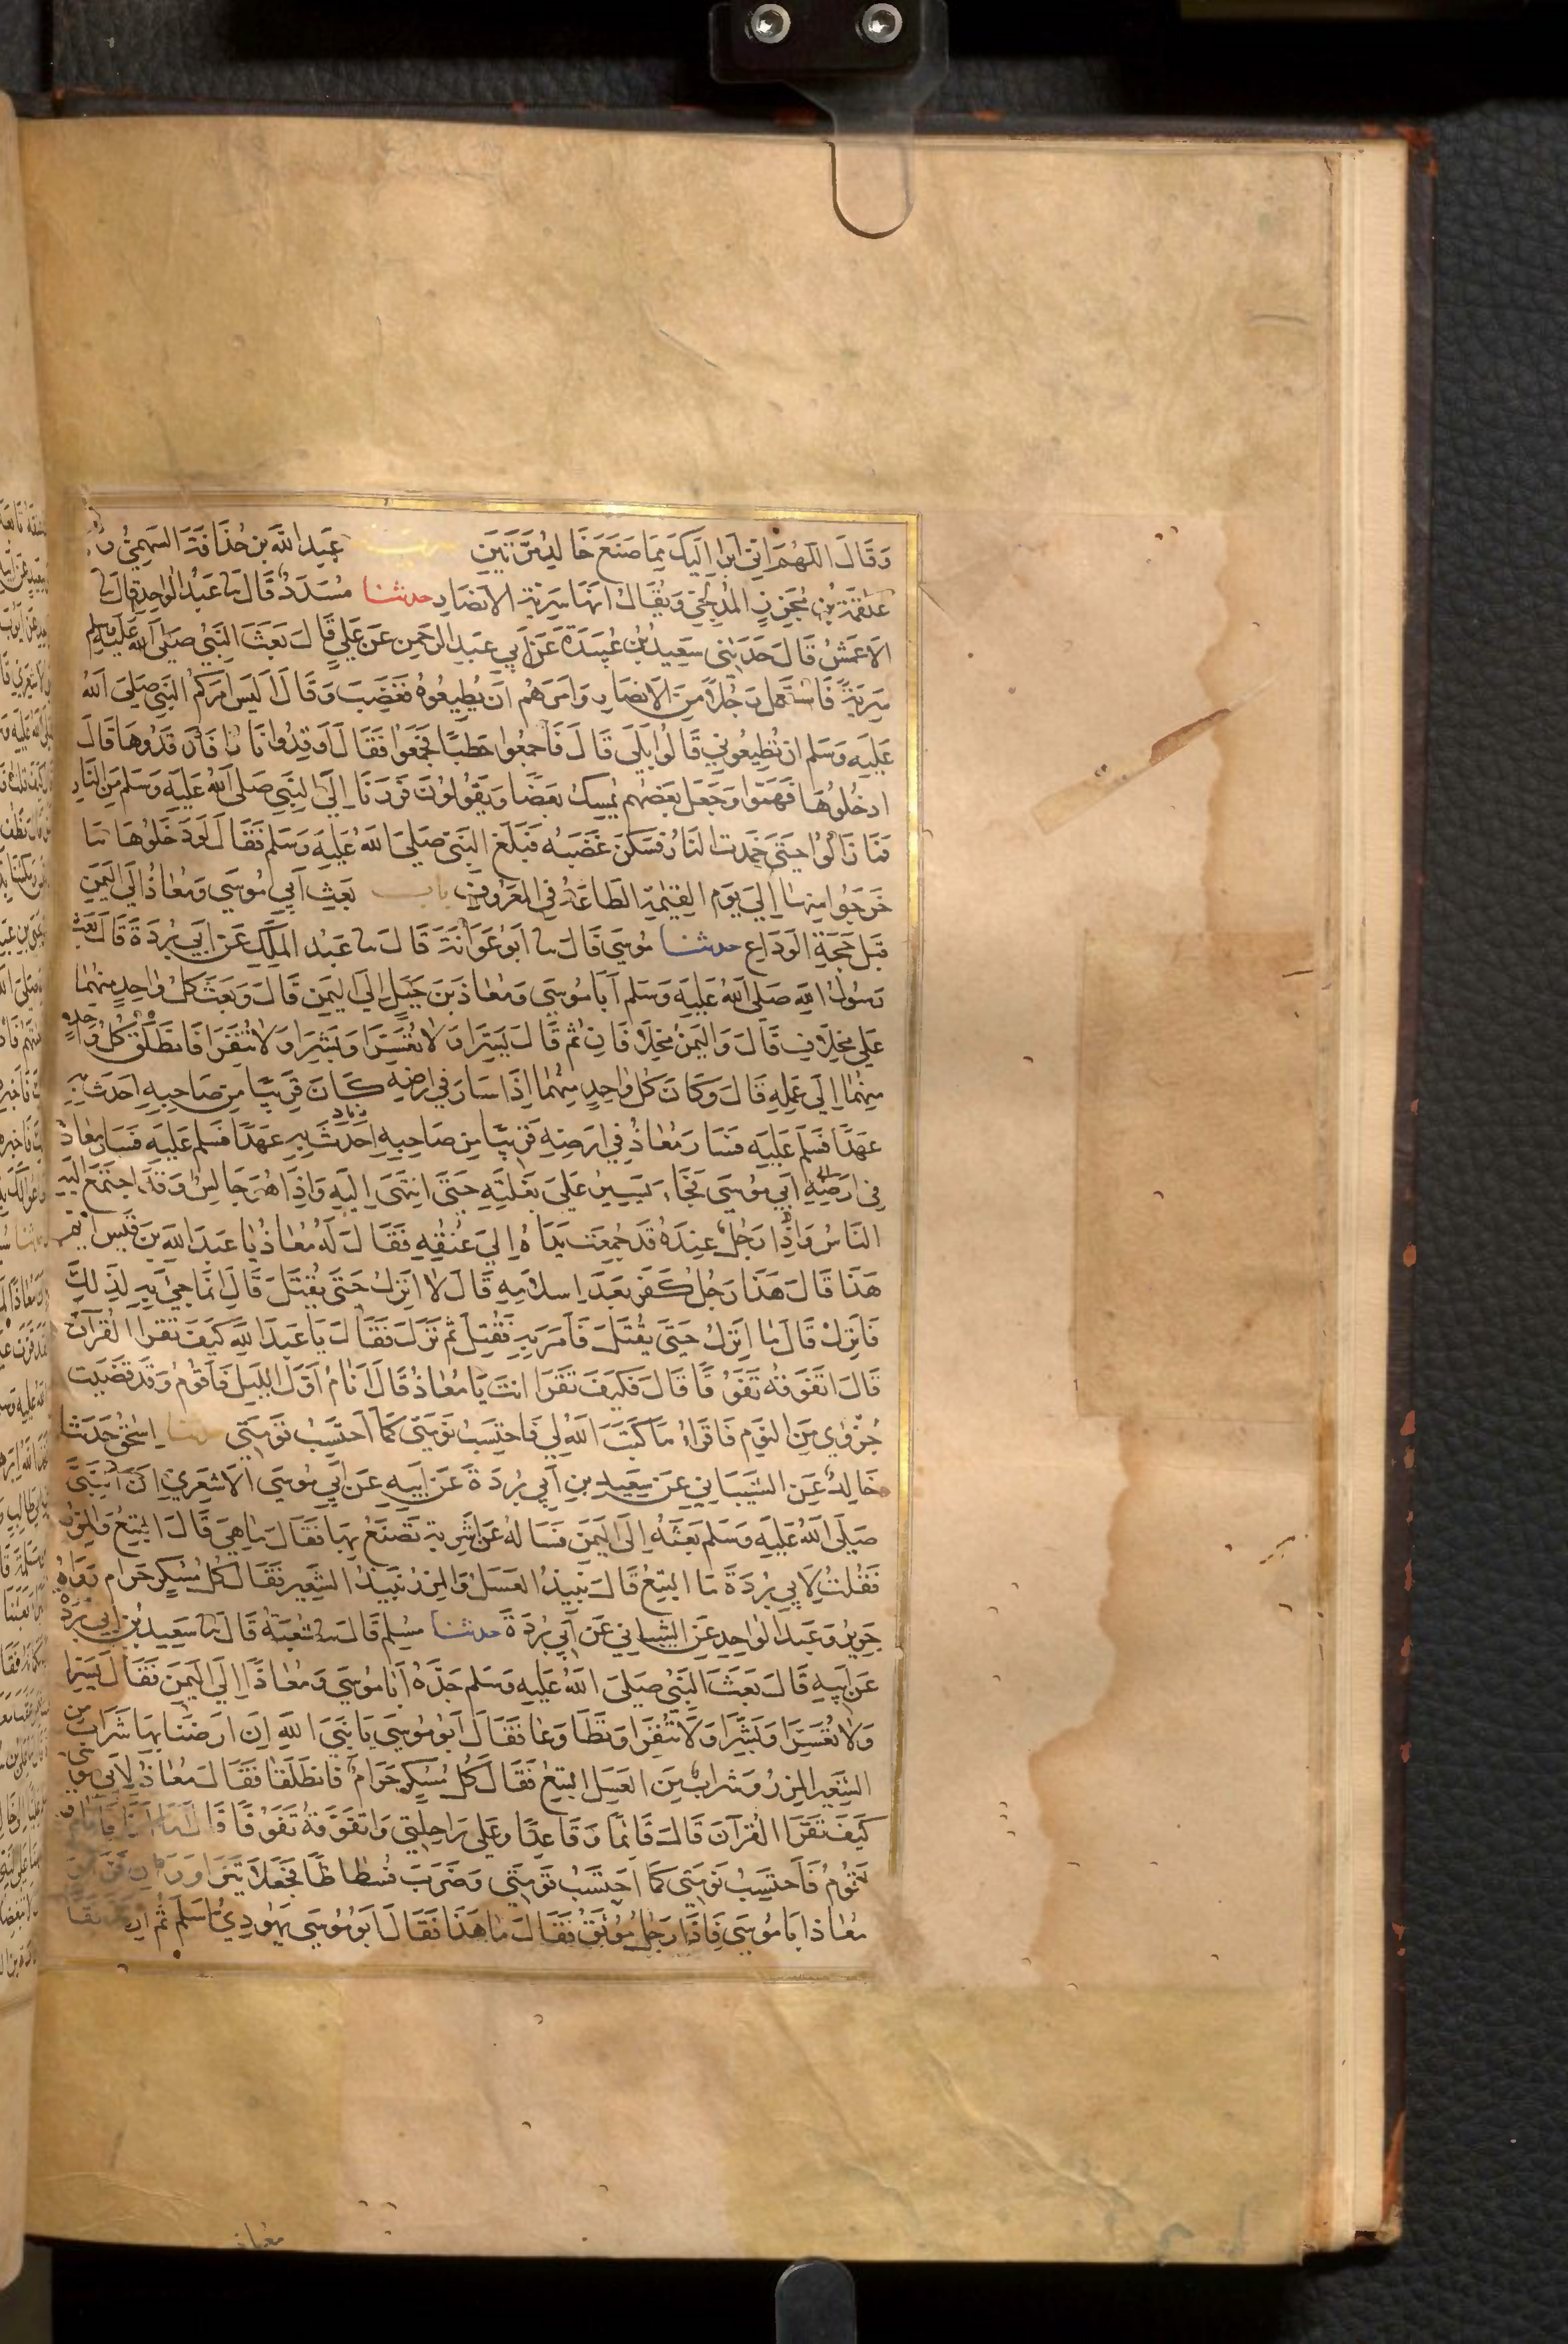 وَقَالَ اللَّهُمَّ اِنِّي اَبْرَأُ اِلَيْكَ مِمَّا صَنَعَ خَالِدٌ مَرَّتَيْنِ سرية عَبْدِ اللَّهِ بْنِ حُذَافَةَ السَّهْمِيِّ وَ
عَلْقَمَةَ بْنِ مُجَزِّزٍ المُدْلِجِيِّ وَيُقَالُ اِنَّهَا سَرِيَّةُ الاَنْصَارِ حدثنا مُسَدَّدٌ قَالَ ثنا عَبْدُ الوَاحِدِ قَالَ ثنا
الاَعْمَشُ قَالَ حَدَّثَنِي سَعِيدُ بْنُ عُبَيْدَةَ عَنْ اَبِي عَبْدِ الرَّحْمَنِ عَنْ عَلِيٍّ قَالَ بَعَثَ النَّبِيُّ صَلَّى اللَّهُ عَلَيْهِ وَسَلَّم
سَرِيَّةً فَاسْتَعْمَلَ رَجُلًا مِنَ الاَنْصَارِ وَاَمَرَهُمْ اَنْ يُطِيعُوهُ فَغَضِبَ وَقَالَ اَلَيْسَ اَمَرَكُمُ النَّبِيُّ صَلَّى اللَّهُ
عَلَيْهِ وَسَلَّم ان تُطِيعُونِي قَالُوا بَلَى قَالَ فَاجْمَعُوا حَطَبًا فَجَمَعُوا فَقَالَ اَوْقِدُوا نَارًا فَاَوْقَدُوهَا قَالَ
ادْخُلُوهَا فَهَمُّوا وَجَعَلَ بَعْضُهُم يُمْسِكُ بَعْضًا وَيَقُولُونَ فَرَرْنَا اِلَى النَّبِيِّ صَلَّى اللَّهُ عَلَيْهِ وَسَلَّم مِنَ النَّارِ
فَمَا زَالُوا حَتَّى خَمَدَتِ النَّارُ فَسَكَنَ غَضَبُهُ فَبَلَغَ النَّبِيَّ صَلَّى اللَّهُ عَلَيْهِ وَسَلَّم فَقَالَ لَوْ دَخَلُوهَا مَا
خَرَجُوا مِنْهَا اِلَى يَوْمِ القِيٰمَةِ الطَّاعَةُ فِي المَعْرُوفِ باب بَعْثِ اَبِي مُوسَى وَمُعَاذٍ اِلَى اليَمَنِ
قَبْلَ حَجَّةِ الوَدَاعِ حدثنا مُوسَى قَالَ ثنا اَبُو عَوَانَةَ قَالَ ثنا عَبْدُ المَلِكِ عَنْ اَبِي بُرْدَةَ قَالَ بَعَثَ
رَسُولُ اللَّهِ صَلَّى اللَّهُ عَلَيْهِ وَسَلَّم اَبَا مُوسَى وَمُعَاذَ بْنَ جَبَلٍ اِلَى اليَمَنِ قَالَ وَبَعَثَ كُلَّ وَاحِدٍ مِنْهُمَا
عَلَى مِخْلَافٍ قَالَ وَاليَمَنُ مِخْلَافَانِ ثُمَّ قَالَ يَسِّرَا وَلَا تُعَسِّرَا وَبَشِّرَا وَلَا تُنَفِّرَا فَانْطَلَقَ كُلُّ وَاحِدٍ
مِنْهُمَا اِلَى عَمَلِهِ قَالَ وَكَانَ كُلُّ وَاحِدٍ مِنْهُمَا اِذَا سَارَ فِي اَرْضِهِ كَانَ قَرِيبًا مِنْ صَاحِبِهِ اَحْدَثَ بِهِ
عَهْدًا فَسَلَّمَ عَلَيْهِ فَسَارَ مُعَاذٌ فِي اَرْضِهِ قَرِيبًا مِنْ صَاحِبِهِ اَحْدَثَ بِهِ عَهْدًا فَسَلَّم عَلَيْهِ فَسَارَ مُعَاذٌ
فِي اَرْضِهِ اَبِي مُوسَى فَجَاءَ يَسِيرُ عَلَى بَغْلَتِهِ حَتَّى انْتَهَى اِلَيْهِ وَاِذَا هُوَ جَالِسٌ وَقَدِ اجْتَمَعَ اِلَيْهِ
النَّاسُ وَاِذَا رَجُلٌ عِنْدَهُ قَدْ جُمِعَتْ يَدَاهُ اِلَى عُنُقِهِ فَقَالَ لَهُ مُعَاذٌ يَا عَبْدَ اللَّهِ بْنَ قَيْسٍ اَيُّمَ
هَذَا قَالَ هَذَا رَجُلٌ كَفَرَ بَعْدَ اِسْلَامِهِ قَالَ لَا اَنْزِلُ حَتَّى يُقْتَلَ قَالَ اِنَّمَا جِيءَ بِهِ لِذَلِكَ
فَانْزِلْ قَالَ مَا اَنْزِلُ حَتَّى يُقْتَلَ فَاَمَرَ بِهِ فَقُتِلَ ثُمَّ نَزَلَ فَقَالَ يَا عَبْدَ اللَّهِ كَيْفَ تَقْرَأُ القُرْآنَ
قَالَ اَتَفَوَّقُهُ تَفَوُّقًا قَالَ فَكَيْفَ تَقْرَأُ اَنْتَ يَا مُعَاذُ قَالَ اَنَامُ اَوَّلَ اللَّيْلِ فَاَقُومُ وَقَدْ قَضَيْتُ
جُزْئِي مِنَ النَّوْمِ فَاَقْرَأُ مَا كَتَبَ اللَّهُ لِي فَاَحْتَسِبُ نَوْمَتِي كَمَا اَحْتَسِبُ قَوْمَتِي حدثنا اِسْحٰقُ حَدَّثَنَا
خَالِدٌ عَنِ الشَّيْبَانِي عَنْ سَعِيدِ بْنِ اَبِي بُرْدَةَ عَنْ اَبِيهِ عَنْ اَبِي مُوسَى الاَشْعَرِيِّ اَنَّ النَّبِيَّ
صَلَّى اللَّهُ عَلَيْهِ وَسَلَّم بَعَثَهُ اِلَى اليَمَنِ فَسَاَلَهُ عَنْ اَشْرِبَةٍ تُصْنَعُ بِهَا فَقَالَ مَا هِيَ قَالَ البِتْعُ وَالمِزْرُ
فَقُلْتُ لِاَبِي بُرْدَةَ مَا البِتْعُ قَالَ نَبِيذُ العَسَلِ وَالمِزْرُ نَبِيذُ الشَّعِيرِ فَقَالَ كُلُّ مُسْكِرٍ حَرَام رَوَاهُ
جَرِيرٌ وَعَبْدُ الوَاحِدِ عَنِ الشَّيْبَانِي عَنْ اَبِي بُرْدَةَ حدثنا مُسْلِم قَالَ ثنا شُعْبَةُ قَالَ ثنا سَعِيدُ بْنُ اَبِي بُرْدَةَ
عَنْ اَبِيهِ قَالَ بَعَثَ النَّبِيُّ صَلَّى اللَّهُ عَلَيْهِ وَسَلَّم جَدَّهُ اَبَا مُوسَى وَمُعَاذًا اِلَى اليَمَنِ فَقَالَ يَسِّرَا
وَلَا تُعَسِّرَا وَبَشِّرَا وَلَا تُنَفِّرَا وَتَطَاوَعَا فَقَالَ اَبُو مُوسَى يَا نَبِيَّ اللَّهِ اِنَّ اَرْضَنَا بِهَا شَرَابٌ مِنَ
الشَّعِيرِ المِزْرُ وَشَرَابٌ مِنَ العَسَلِ البِتْعُ فَقَالَ كُلُّ مُسْكِرٍ حَرَامٌ فَانْطَلَقَا فَقَالَ مُعَاذٌ لِاَبِي مُوسَى
كَيْفَ تَقْرَأُ القُرْآنَ قَالَ قَائِمًا وَقَاعِدًا وَعَلَى رَاحِلَتِي وَاَتَفَوَّقُهُ تَفَوُّقًا قَالَ اَمَّا اَنَا فَاَنَامُ
ثُمَّ اَقُومُ فَاَحْتَسِبُ نَوْمَتِي كَمَا اَحْتَسِبُ قَوْمَتِي وَضَرَبَ فُسْطَاطًا فَجَعَلَا يَتَزَاوَرَانِ فَزَارَ
مُعَاذٌ اَبَا مُوسَى فَاِذَا رَجُلٌ مُوثَقٌ فَقَالَ مَا هَذَا فَقَالَ اَبُو مُوسَى يَهُودِيٌّ اَسْلَمَ ثُمَّ ارْتَدَّ فَقَالَ
معاذ